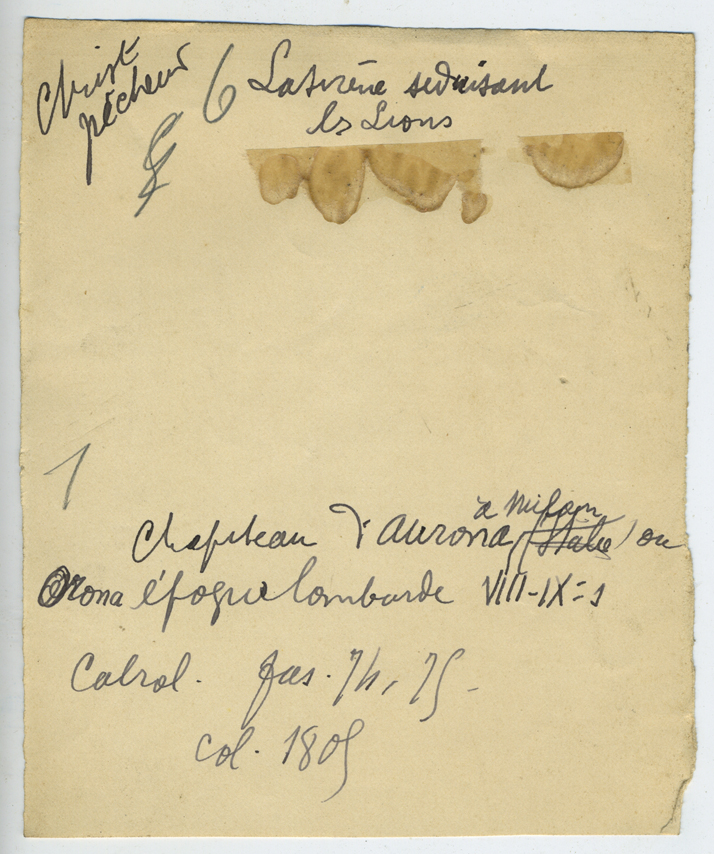 Christ
pêcheur
6 La sirène séduisant
les Lions
1
à Milan
Chapiteau d'Aurona, (Italie) ou
Orona époque lombarde VIII-IX=s
Cabrol. fas. 74, 75 -
col. 1805